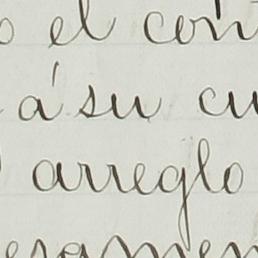 o el con
á su cu
arreglo